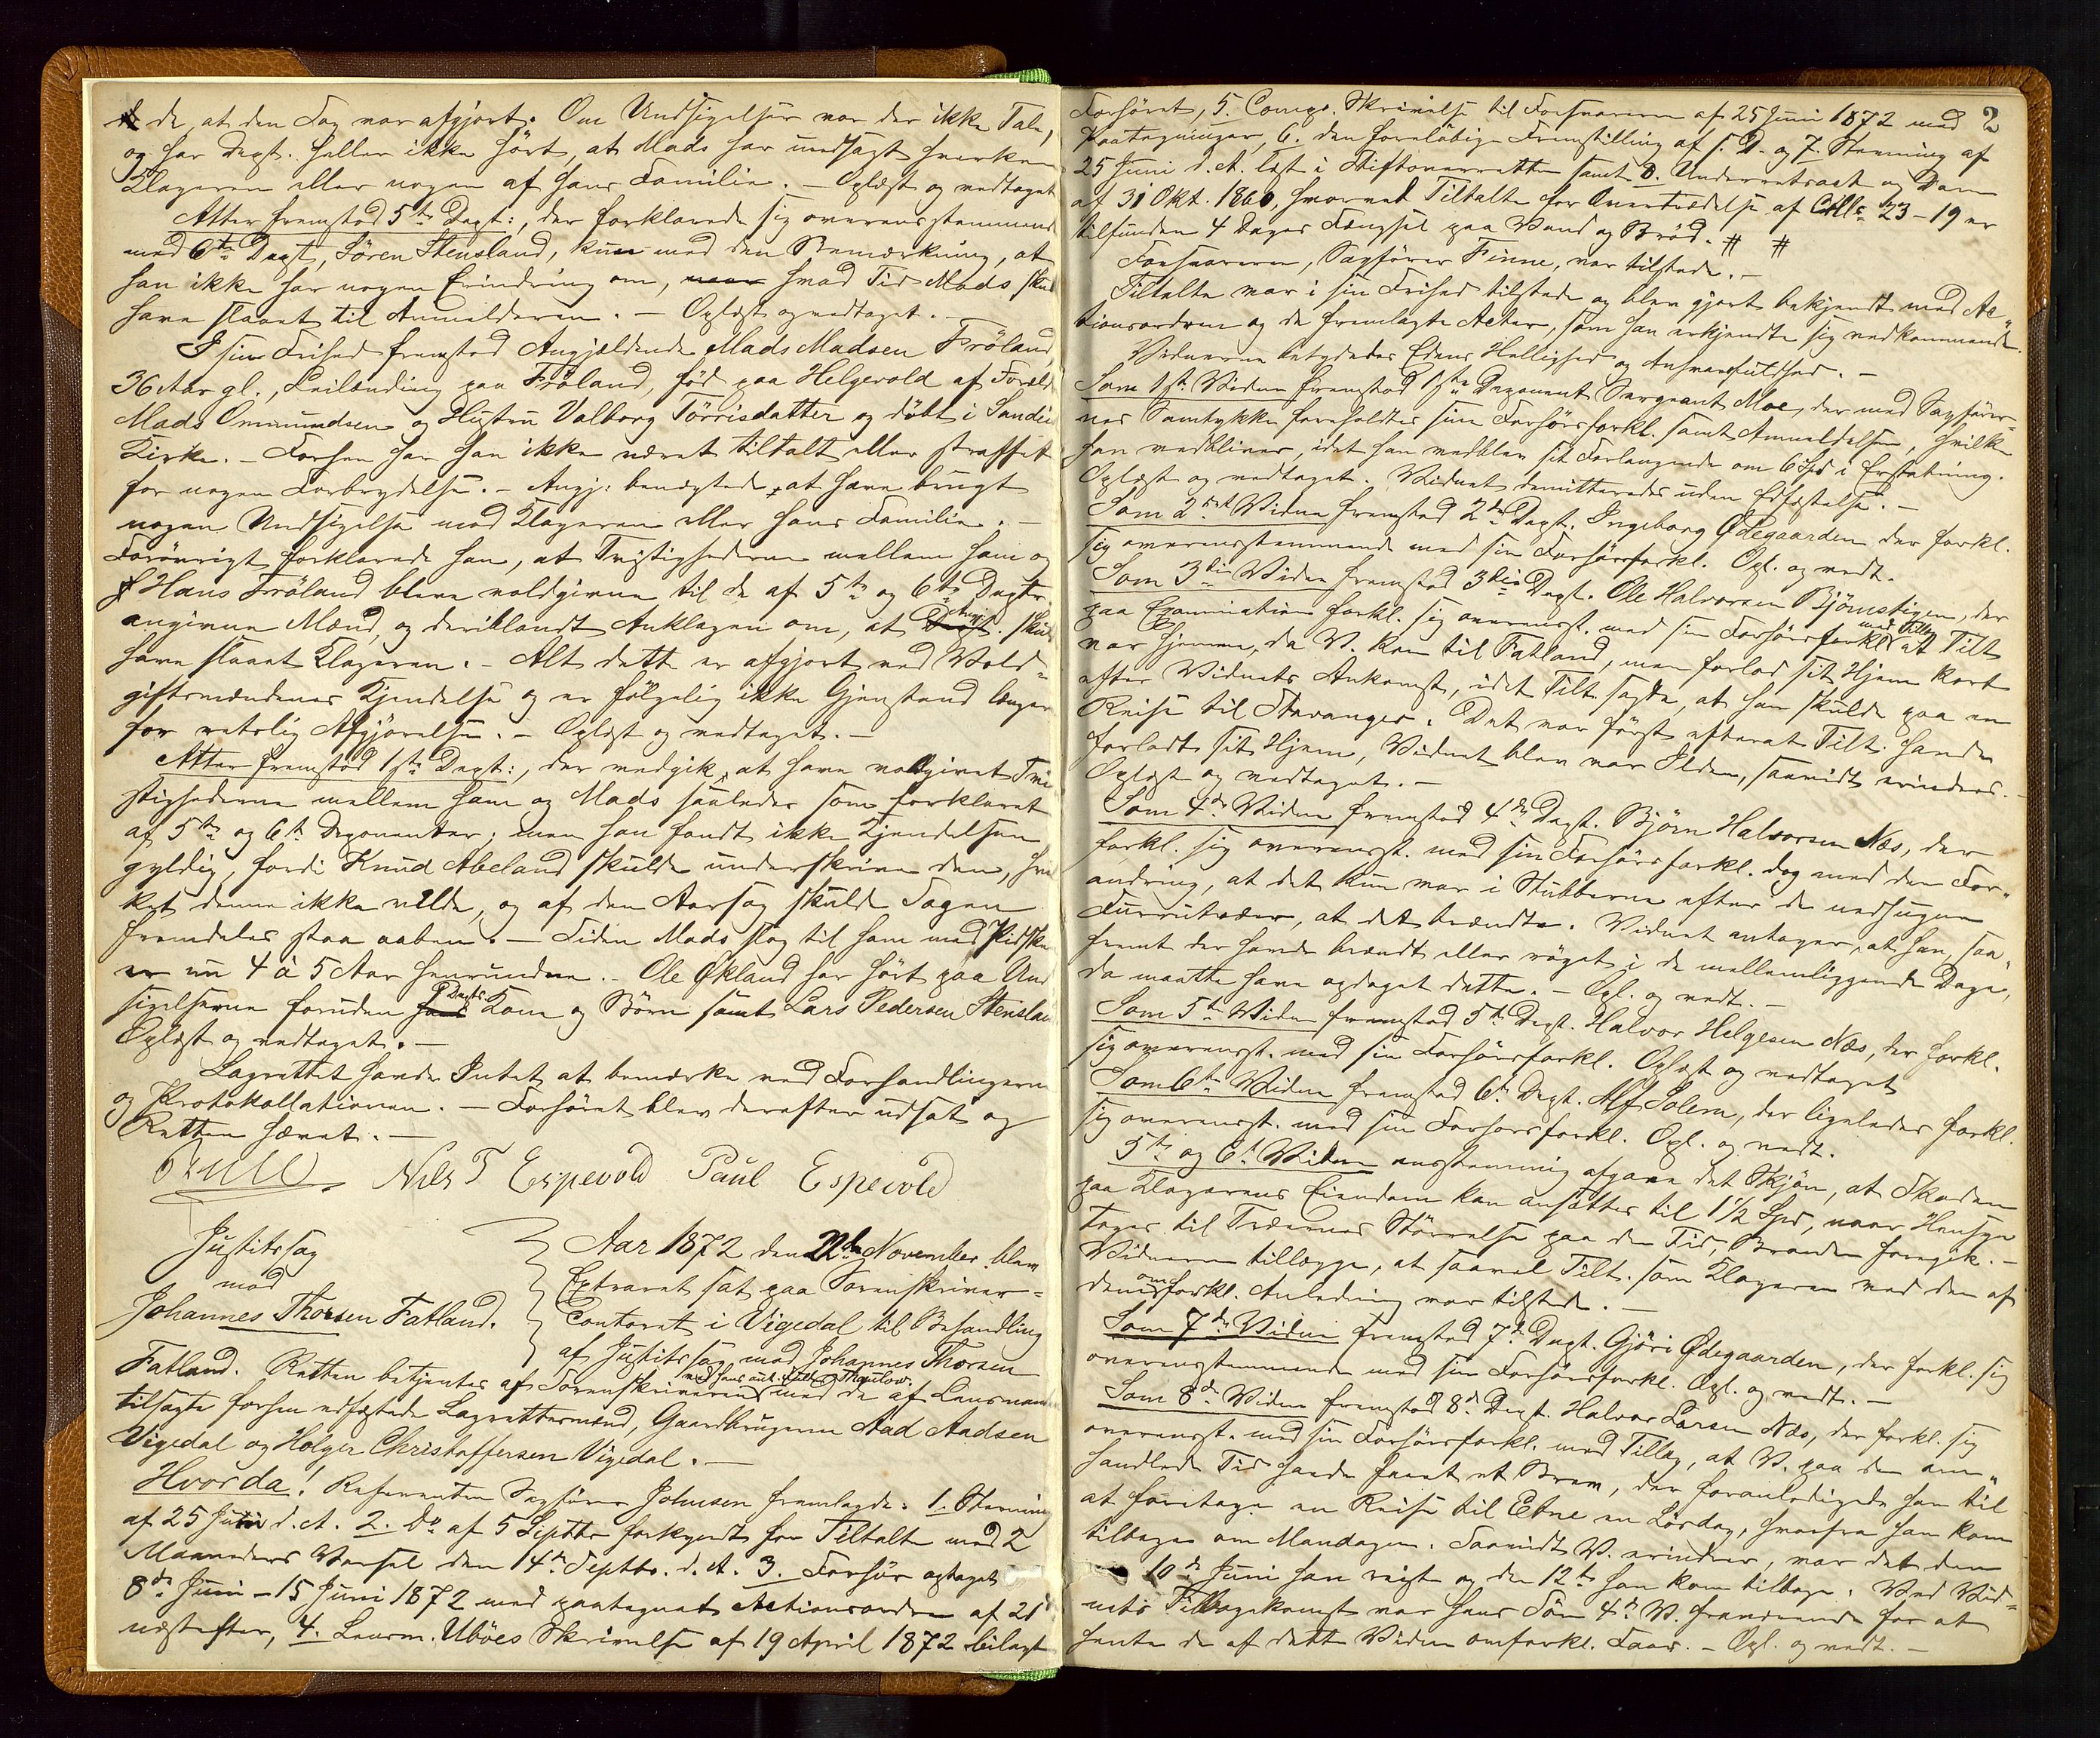 de, at den Sag var afgjort. Om Undsigelser var der ikke Tale,
og har Dept. heller ikke hört, at Mads har undsagt hverken
Klageren eller nogen af hans Familie. – Oplæst og vedtaget
Atter fremstod 5te Dept:, der forklarede sig overensstemmende
med 6te Dept, Sören Stensland, kun med den Bemærkning, at
han ikke har nogen Erindring om, hvad Tid Mads skul
have slaaet til Anmelderen. – Oplæst og vedtaget. –
I sin Frihed fremstod Angjældende Mads Madsen Fröland,
36 Aar gl., Leilænding paa Fröland, föd paa Helgevold af Foræld
Mads Ommundsen og Hustru Valborg Törrisdatter og döbt i Sandeid
Kirke. – Forhen har han ikke været tiltalt eller straffet
for nogen Forbrydelse. – Angj: benægtede, at have brugt
nogen Undsigelse mod Klageren eller hans Familie. –
Forövrigt forklarede han, at Tvistighederne mellem ham og
Hans Fröland bleve voldgivne til de af 5te og 6te Depter
angivne Mænd, og deriblandt Anklagen om, at Angj. skul
have slaaet Klageren. – Alt dette er afgjort ved Vold-
giftsmændenes Kjendelse og er fölgelig ikke Gjenstand længer
for retslig Afgjörelse. – Oplæst og vedtaget. –
Atter fremstod 1ste Dept:, der medgik, at have voldgivet Tvi
stighederne mellem ham og Mads saaledes som forklaret
af 5te og 6te Deponenter; men han fandt ikke Kjendelsen
gyldig, fordi Knud Abeland skulde underskrive den, hvil
ket denne ikke vilde, og af den Aarsag skulde Sagen
fremdeles staa aaben. – Siden Mads slog til ham med Pidske
er nu 4 à 5 Aar henrundne. – Ole Økland har hört paa Und
sigelserne foruden Depts. Kone og Börn samt Lars Pedersen Stensland
Oplæst og vedtaget. –
Lagrettet havde Intet at bemærke ved Forhandlingerne
og Protokollationen. – Forhöret blev derefter udsat og
Retten hævet. –
Nils T Espevold Paul Espevold
Justitssag
mod
Johannes Thorsen Fatland.
Aar 1872 den 22de November blev
Extraret sat paa Sorenskriver-
Contoret i Vigedal til Behandling
af Justitssag mod Johannes Thorsen
Fatland. Retten betjentes af Sorenskriveren ved hans aut. Fuldm. Thaulow. med de af Lensmanden
tilsagte forhen edfæstede Lagrettesmænd, Gaardbrugerne Aad Aadsen
Vigedal og Holger Christoffersen Vigedal. –
Hvorda! Referenten Sagförer Johnsen fremlagde: 1. Stevning
af 25 Juni d. A. 2. Do af 5 Septbr forkyndt for Tiltalte med 2
Maaneders Varsel den 14de Septbr. d. A. 3. Forhör optaget
8de Juni – 15 Juni 1872 med paategnet Actionsordre af 21
næstefter, 4. Lensm. Uböes Skrivelse af 19 April 1872 bilagt
2
Forhöret, 5. Comps. Skrivelse til Forsvareren af 25 Juni 1872 med
Paategninger, 6. den foreløbige Fremstilling af s. D. og 7. Stevning af
25 Juni d. A. læst i Stiftsoverretten samt 8. Underretsact og Dom
af 31 Okt. 1860, hvorved Tiltalte for Overtrædelse af Crlls 23–19 er
tilfunden 4 Dages Fængsel paa Vand og Bröd. # #
Forsvareren, Sagförer Finne, var tilstede. –
Tiltalte var i sin Frihed tilstede og blev gjort bekjendt med Ac-
tionsordren og de fremlagte Acter, som han erkjendte sig vedkommende.
Vidnerne betydedes Edens Hellighed og Ansvarsfuldhed. –
Som 1ste Vidne fremstod 1ste Deponent Sergeant Moe, der med Sagförer-
nes Samtykke foreholdtes sin Forhörsforkl. samt Anmeldelsen, hvilke
han vedbliver, idet han vedblev sit Forlangende om 6 Spd i Erstatning.
Oplæst og vedtaget. Vidnet demitteredes uden Edfæstelse. –
Som 2det Vidne fremstod 2de Dept. Ingeborg Ødegaarden der forkl.
sig overensstemmende med sin Forhörsforkl. Opl. og vedt.
Som 3die Vidne fremstod 3die Dept. Ole Halvorsen Bjömstigen, der
paa Examination forkl. sig overensst. med sin Forhörsforkl. med Tillæg at Tilt
var hjemme, da V. kom til Fatland, men forlod sit Hjem kort
efter Vidnets Ankomst, idet Tilt. sagde, at han skulde paa en
Reise til Stavanger. Det var först efterat Tilt. havde
forladt sit Hjem, Vidnet blev var Ilden, saavidt erindres. –
Oplæst og vedtaget. –
Som 4de Vidne fremstod 4de Dept. Björn Halvorsen Næs, der
forkl. sig overensst. med sin Forhörsforkl. dog med den For-
andring, at det kun var i Stubberne efter de nedhugne
Furrutræer, at det brændte. Vidnet antager, at han, saa-
fremt der havde brændt eller röget i de mellemliggende Dage,
da maatte have opdaget dette. – Opl. og vedt. –
Som 5te Vidne fremstod 5te Dept. Halvor Helgesen Næs, der forkl.
sig overensst. med sin Forhörsforkl. Oplæst og vedtaget
Som 6te Vidne fremstod 6te Dept. Alf Solem, der ligeledes forkl.
sig overensst. med sin Forhörsforkl. Opl. og vedt.
5te og 6te Vidne enstemmig afgave det Skjön, at Skaden
paa Klagerens Eiendom kan ansættes til 1 1/2 Spd, naar Hensyn
tages til Træernes Störrelse paa den Tid, Branden foregik. –
Vidnerne tillægge, at saavel Tilt. som Klageren ved den af
dem omforkl. Anledning var tilstede. –
Som 7de Vidne fremstod 7de Dept. Gjöri Ødegaarden, der forkl. sig
overensstemmende med sin Forhörsforkl. Opl. og vedt. –
Som 8de Vidne fremstod 8de Dept. Halvor Larsen Næs, der forkl. sig
overensst. med sin Forhörsforkl. med Tillæg, at V. paa den om-
handlede Tid havde faaet et Brev, der foranledigede ham til
at foretage en Reise til Etne en Lördag, hvorfra han kom
tilbage om Mandagen. Saavidt V. erindrer, var det den
10de Juni han reiste og den 12te han kom tilbage. Ved Vid-
nets Tilbagekomst var hans Sön 4de V. fraværende for at
hente de af dette Vidne omforkl. Faar. – Opl. og vedt. –